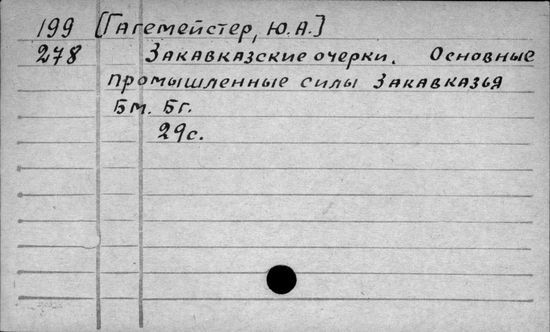 199 [Гагемейстер, Ю.А.]
278 Закавказские очерки. Основные
промышленные силы Закавказья
Бм. Бг.
29с.